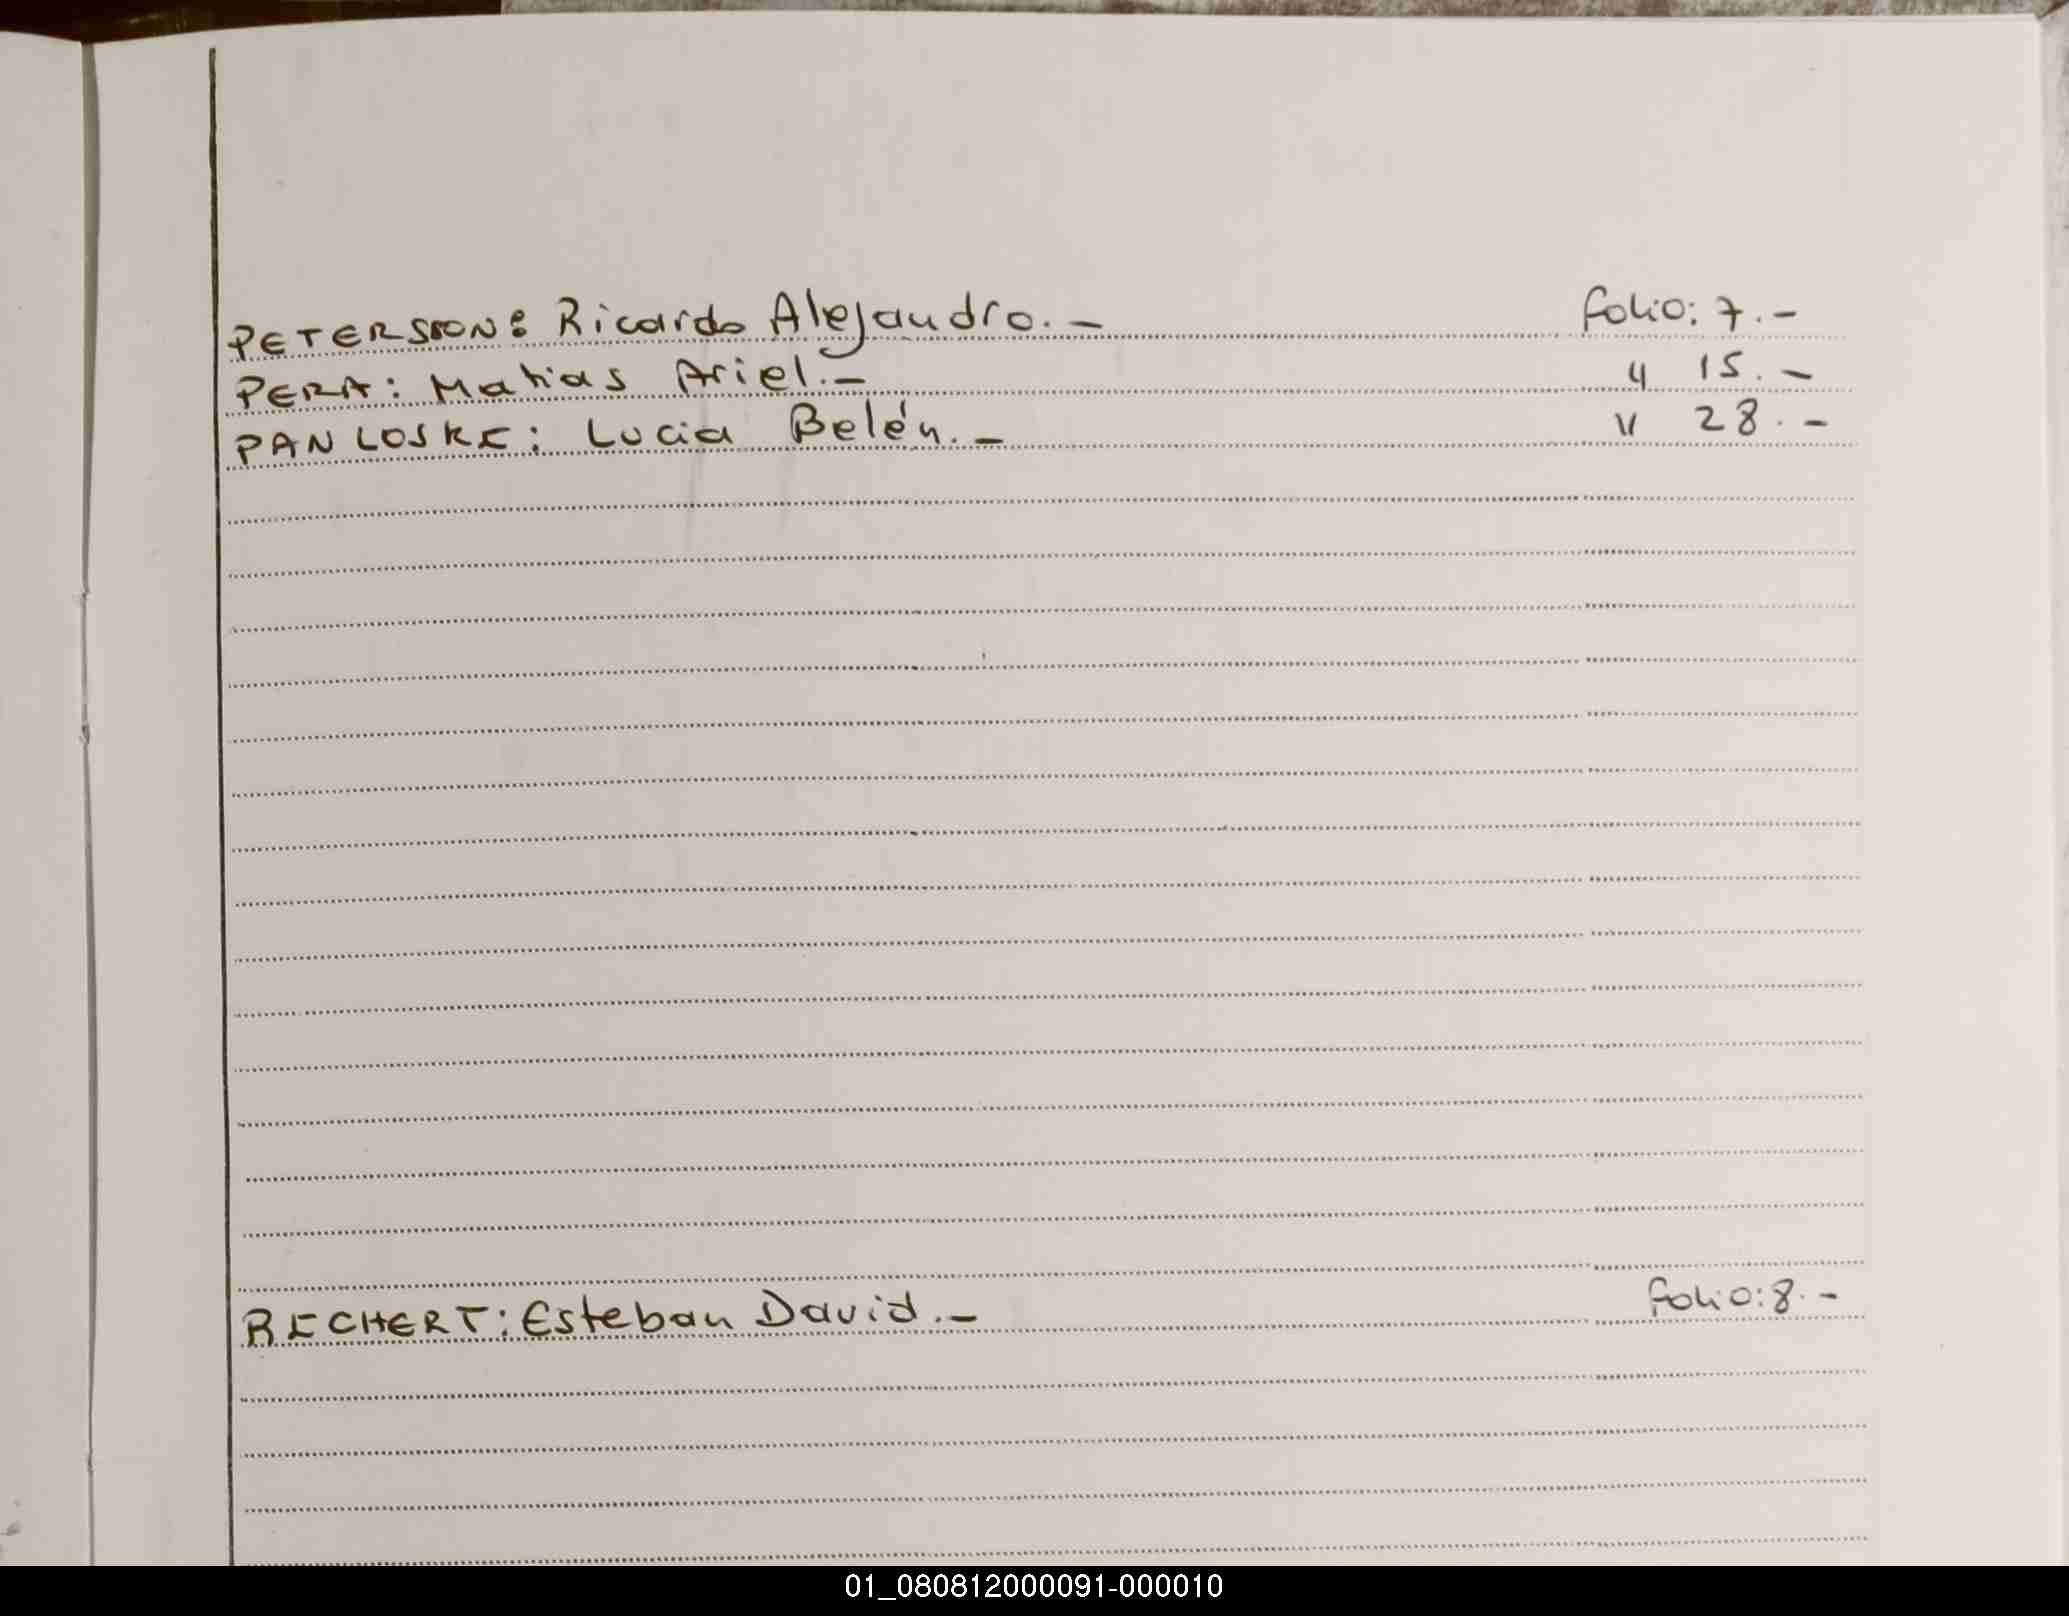 PETERSSON: Ricardo Alejandro.- Folio: 7.-
PERA: Matias Ariel.- " 15.-
PANLOSKE: Lucia Belén.- " 28.-
RECHERT: Esteban David.- Folio: 8.-
01_080812000091-000010